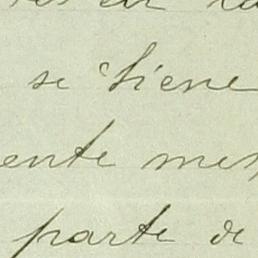 se tiene
ente men
parte de